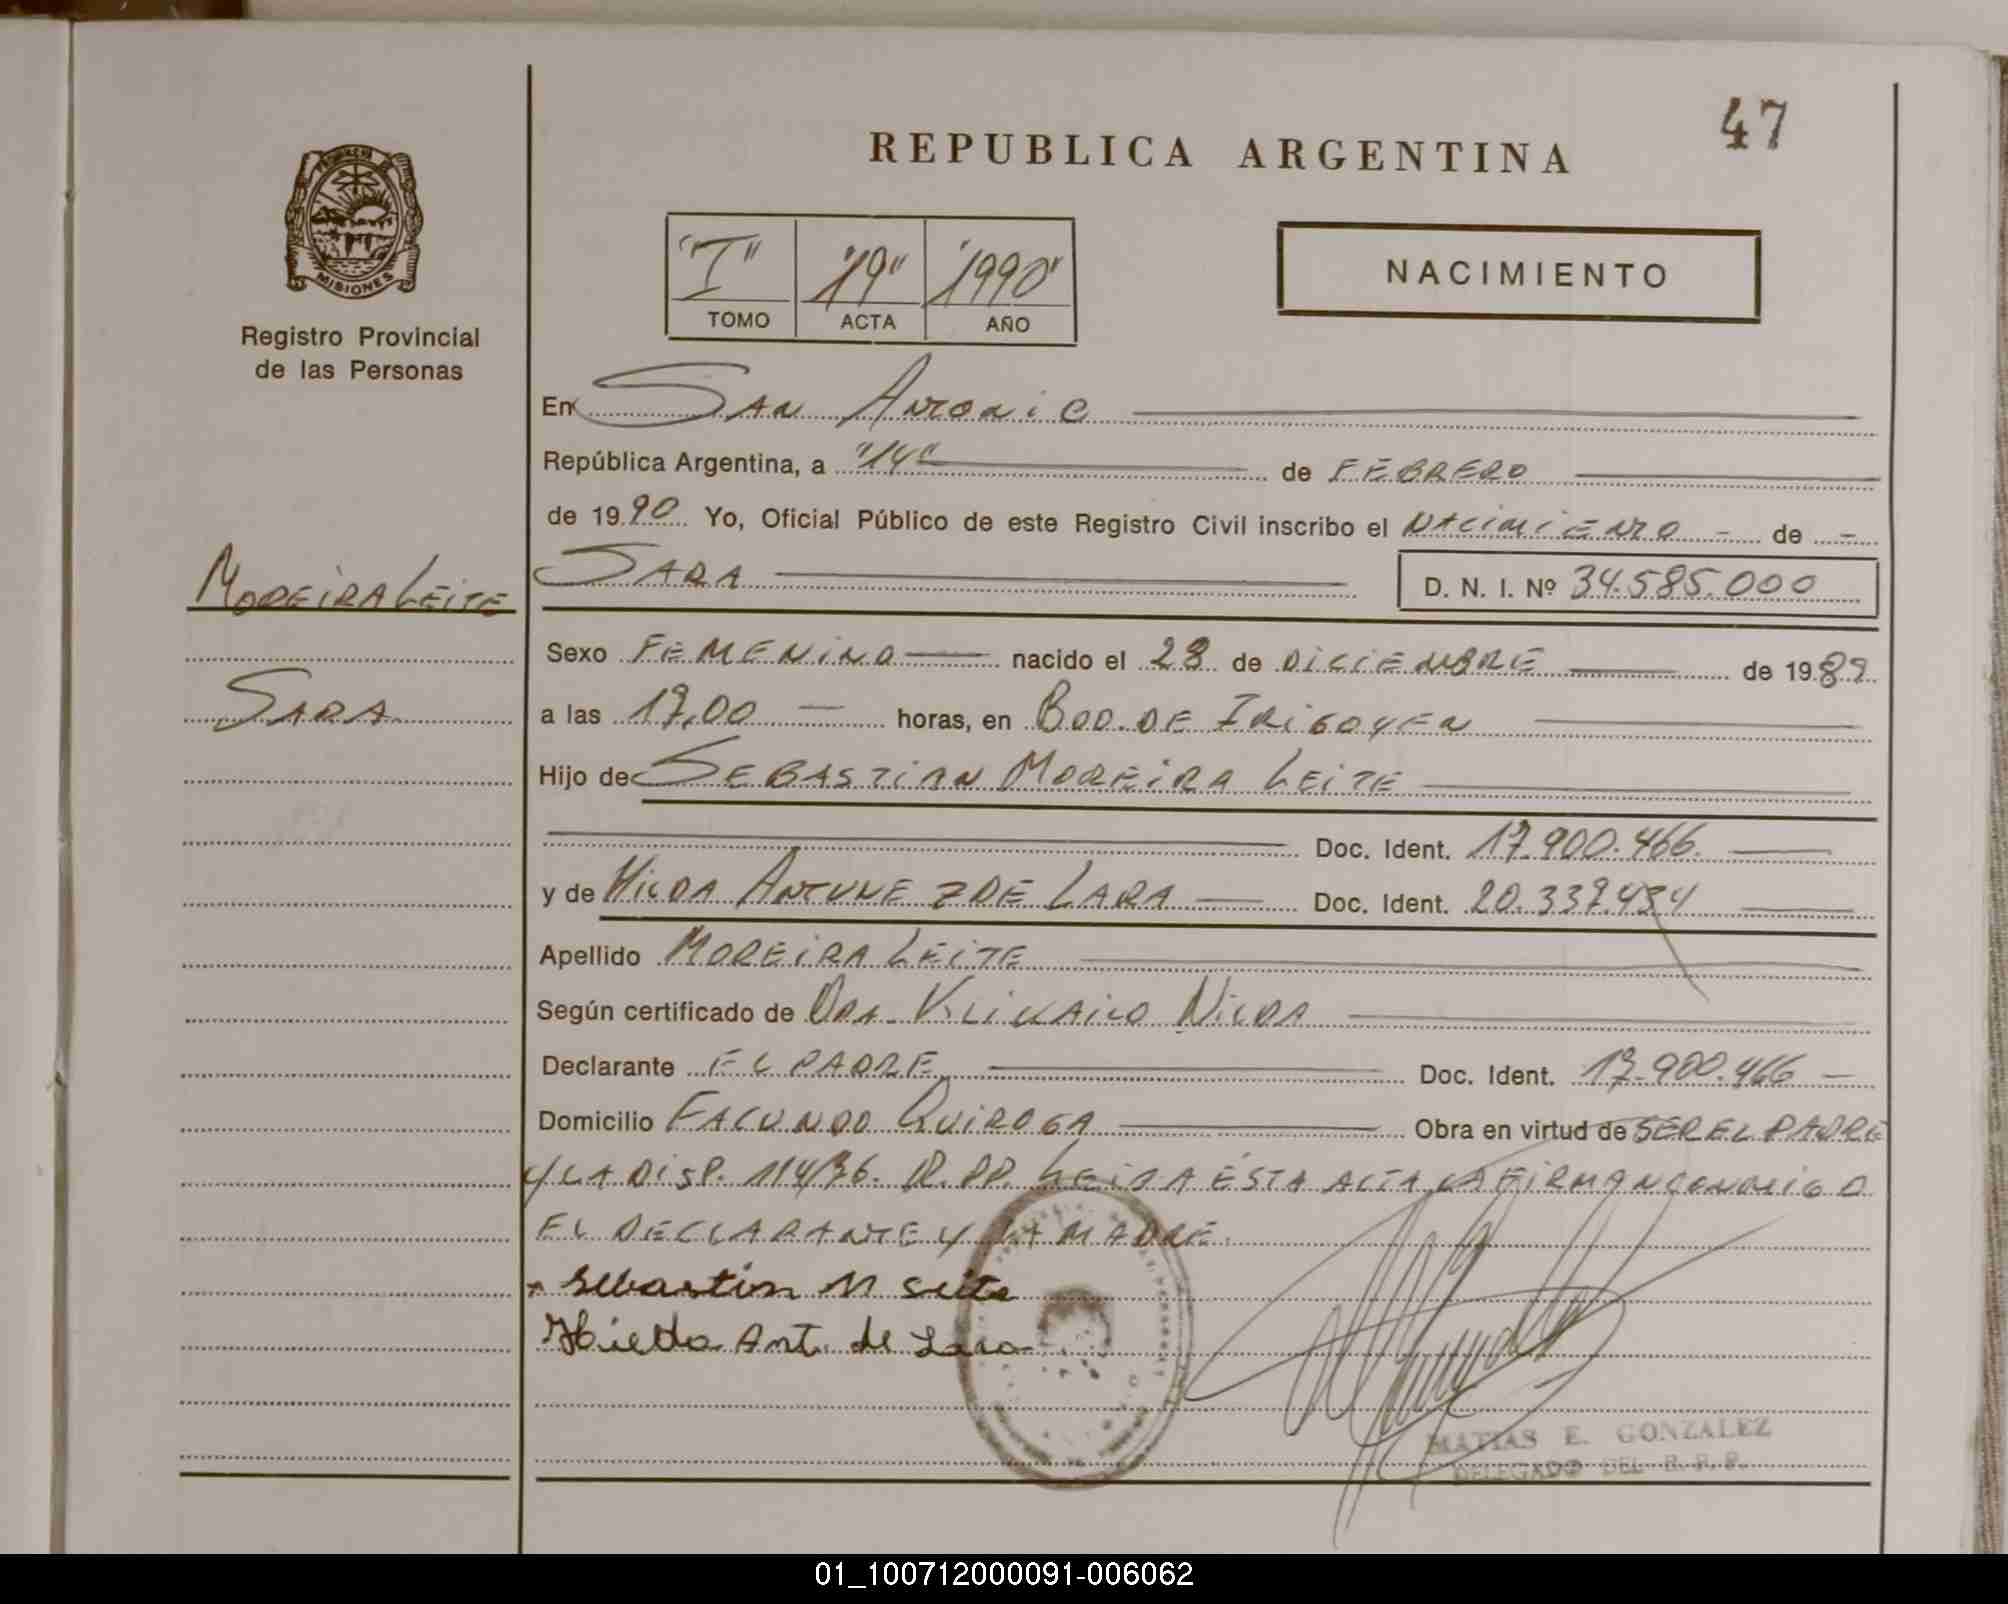 47
REPUBLICA ARGENTINA
"I" "19" "1990"
TOMO ACTA AÑO
NACIMIENTO
MISIONES
Registro Provincial
de las Personas
En San Antonio
República Argentina, a "14" de FEBRERO
de 1990 Yo, Oficial Público de este Registro Civil inscribo el NACIMIENTO - de -
MOREIRA LEITE
SARA
SARA D. N. I. Nº 34.585.000
Sexo FEMENINO nacido el 28 de DICIEMBRE de 1989
a las 17,00 horas, en BDO. DE IRIGOYEN
Hijo de SEBASTIAN MOREIRA LEITE
Doc. Ident. 17.900.466
y de HILDA ANTUNEZ DE LARA Doc. Ident. 20.337.434
Apellido MOREIRA LEITE
Según certificado de DRA. NILDA
Declarante EL PADRE Doc. Ident. 17.900.466
Domicilio FACUNDO QUIROGA Obra en virtud de SER EL PADRE
Y LA DISP. 114/76. R.PP. LEIDA ESTA ACTA LA FIRMAN CONMIGO
EL DECLARANTE Y LA MADRE.
Sebastian M Leite
Hilda Ant. de Lara
MATIAS E. GONZALEZ
DELEGADO DEL R. P. P.
01_100712000091-006062